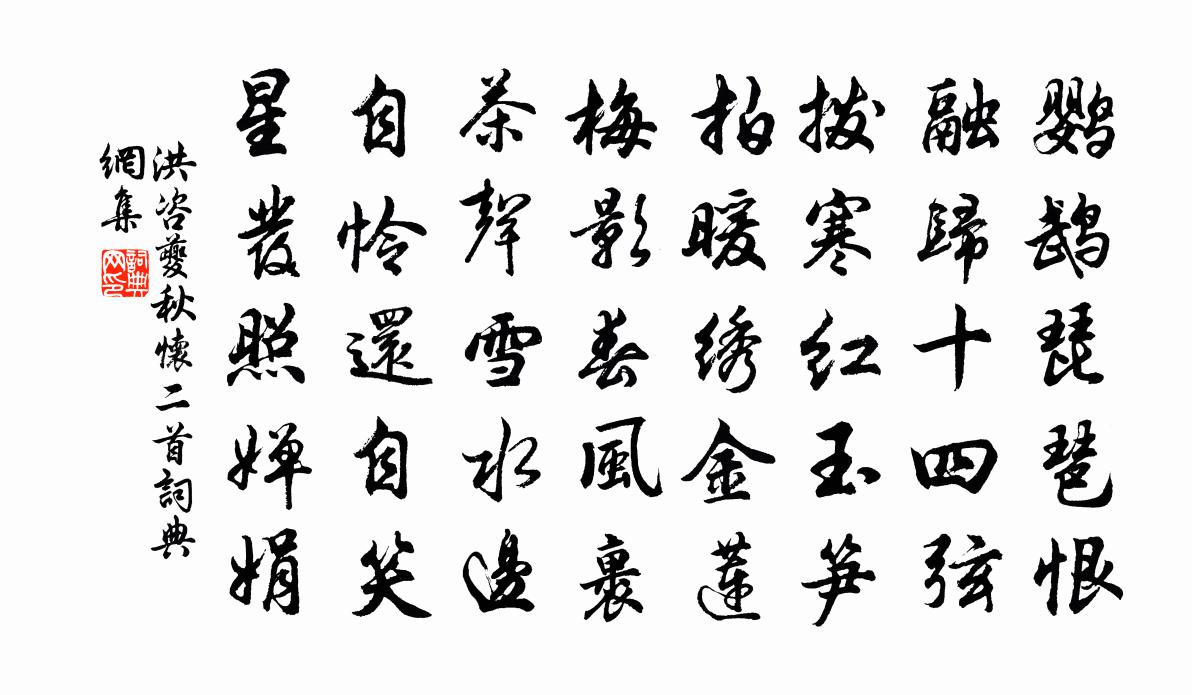 鹦鹉琵琶恨
融歸十四弦
拨寒红玉笋
拍暖绣金蓮
梅影春風裏
茶聲雪水邊
自怜還自笑
星发照婵娟
洪咨夔秋懷二首詞典
網集
詞典网印